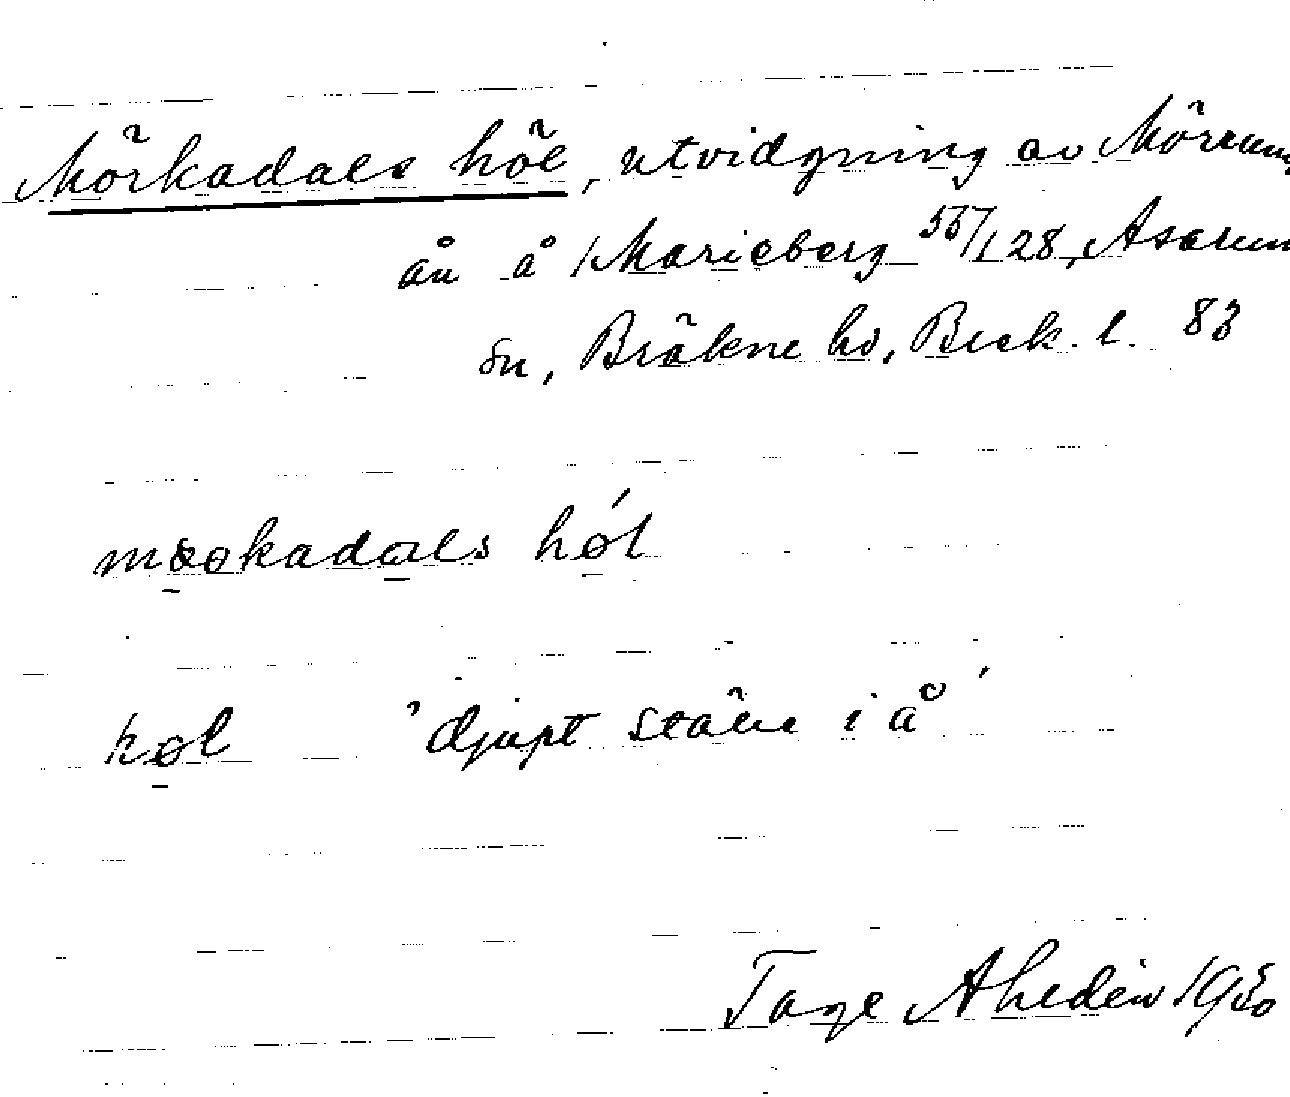 Mörkadals höl, utvidgning av Mörrums
ån å Marieberg 55/128, Asarum
sn, Bräkne hd, Beck. l. 83
møøkadals høl
høl 'djupt ställe i å'
Tage Ahedén 1950